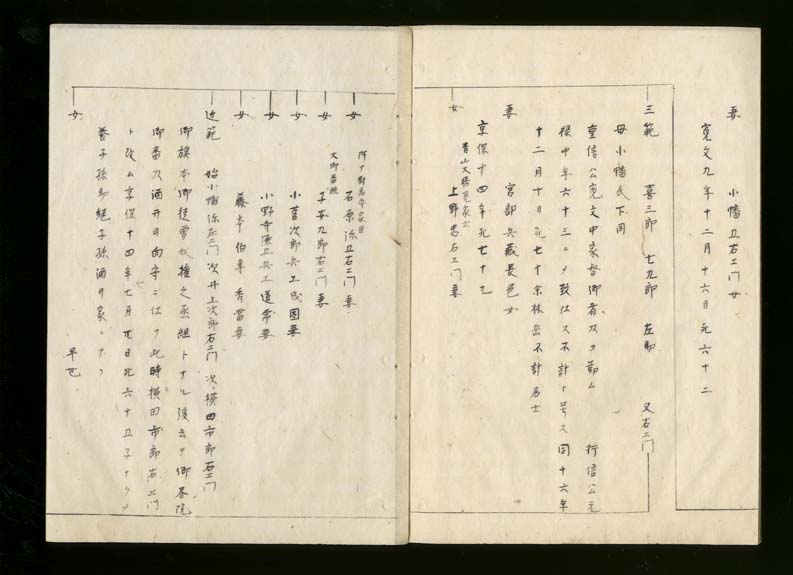 妻 小幡五右エ門女
寛文九年十二月十六日死六十二
三範 喜三郎 七九郎 左助 又右エ門
母小幡氏下同
重信公寛文中家督御者刀ヲ勤ム 行信公元
禄中年六十三ニメ致仕ス不計ト号ス同十六年
十二月十日死七十余林岳不計居士
妻 宮部兵蔵長邑女
享保十四年死七十九
女 青山大膳亮家士
上野忠右エ門妻
女 阿部対馬守家臣
石原源五右エ門妻
女 大御番組
子安九郎右エ門妻
女 小菅次郎兵エ成国妻
女 小野寺源五兵エ道常妻
女 藤本伯専秀富妻
近範 始小幡源左エ門次井上次郎右エ門 次ニ横田市郎右エ門
御旗本御徒曽我権之丞組トナル後去テ御暮院
御番刀酒井日向守ニ仕フ此時横田市郎右エ門
ト改ム享保十四年七月元日死六十五子ナクメ
養子孫助絶子孫酒井家ニアリ
女 早世